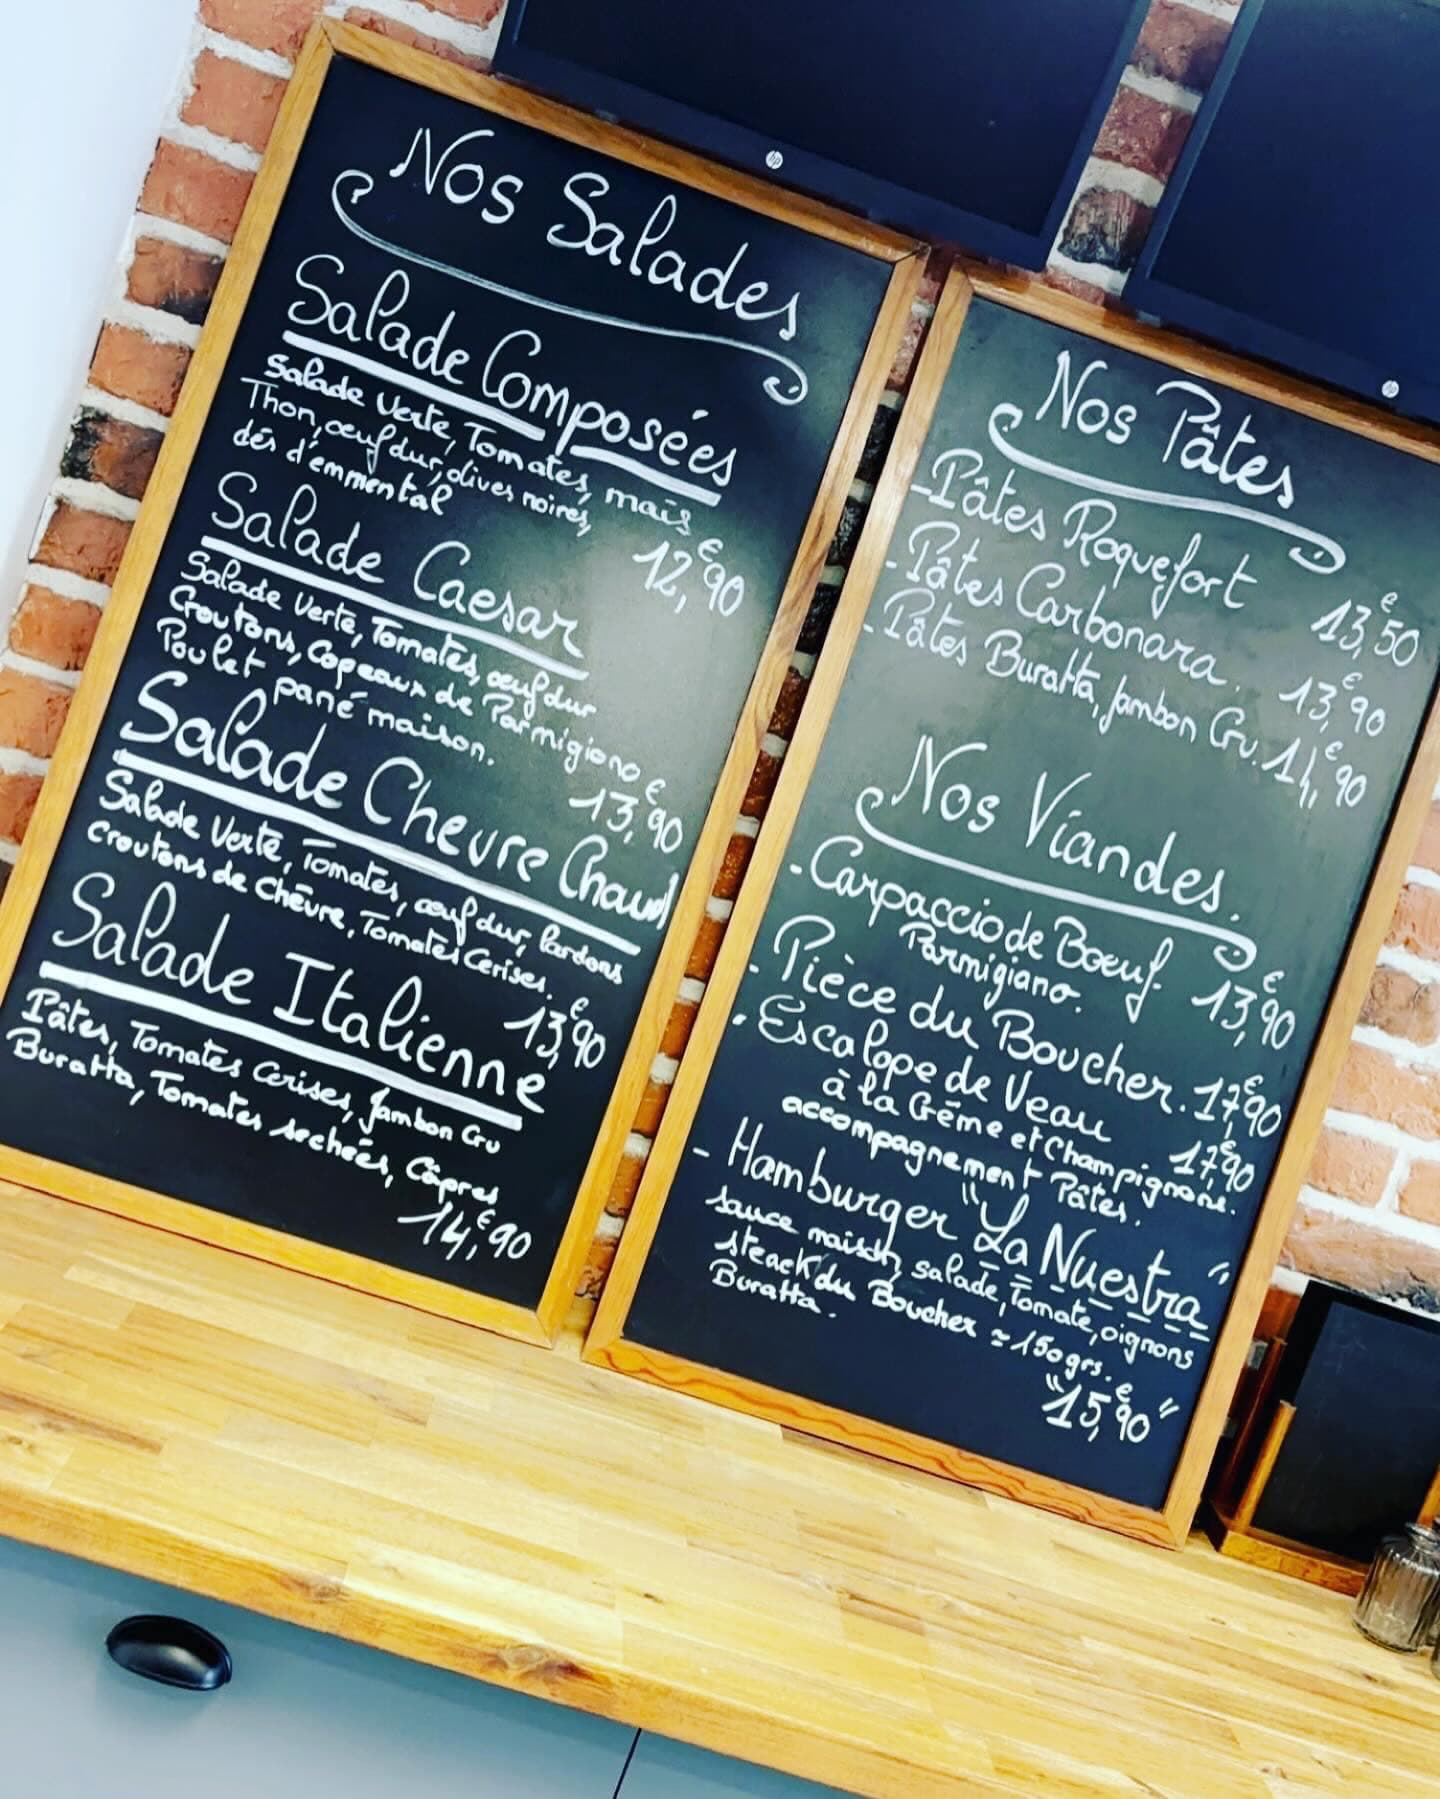 Nos Salades
Salade Composées
Salade Verte, Tomates, maïs
Thon, œuf dur, olives noires,
dés d'emmental
12,€90
Salade Caesar
Salade Verte, Tomates, œuf dur
Croutons, Copeaux de Parmigiano
Poulet pané maison.
13,€90
Salade Chevre Chaud
Salade Verte, Tomates, œuf dur, lardons
croutons de Chêvre, Tomates Cerises.
13,€90
Salade Italienne
Pâtes, Tomates Cerises, Jambon Cru
Buratta, Tomates sechées, Câpres
14,€90
Nos Pâtes
- Pâtes Roquefort 13,€50
- Pâtes Carbonara. 13,€90
- Pâtes Buratta, Jambon Cru. 14,€90
Nos Viandes.
- Carpaccio de Bœuf. 13,€90
Parmigiano.
- Pièce du Boucher. 17,€90
- Escalope de Veau 17,€90
à la Créme et Champignons.
accompagnement Pâtes.
- Hamburger "La Nuestra"
sauce maison, salade, Tomate, oignons
steack du Boucher ≃ 150grs.
Buratta.
"15,€90"
hp
hp